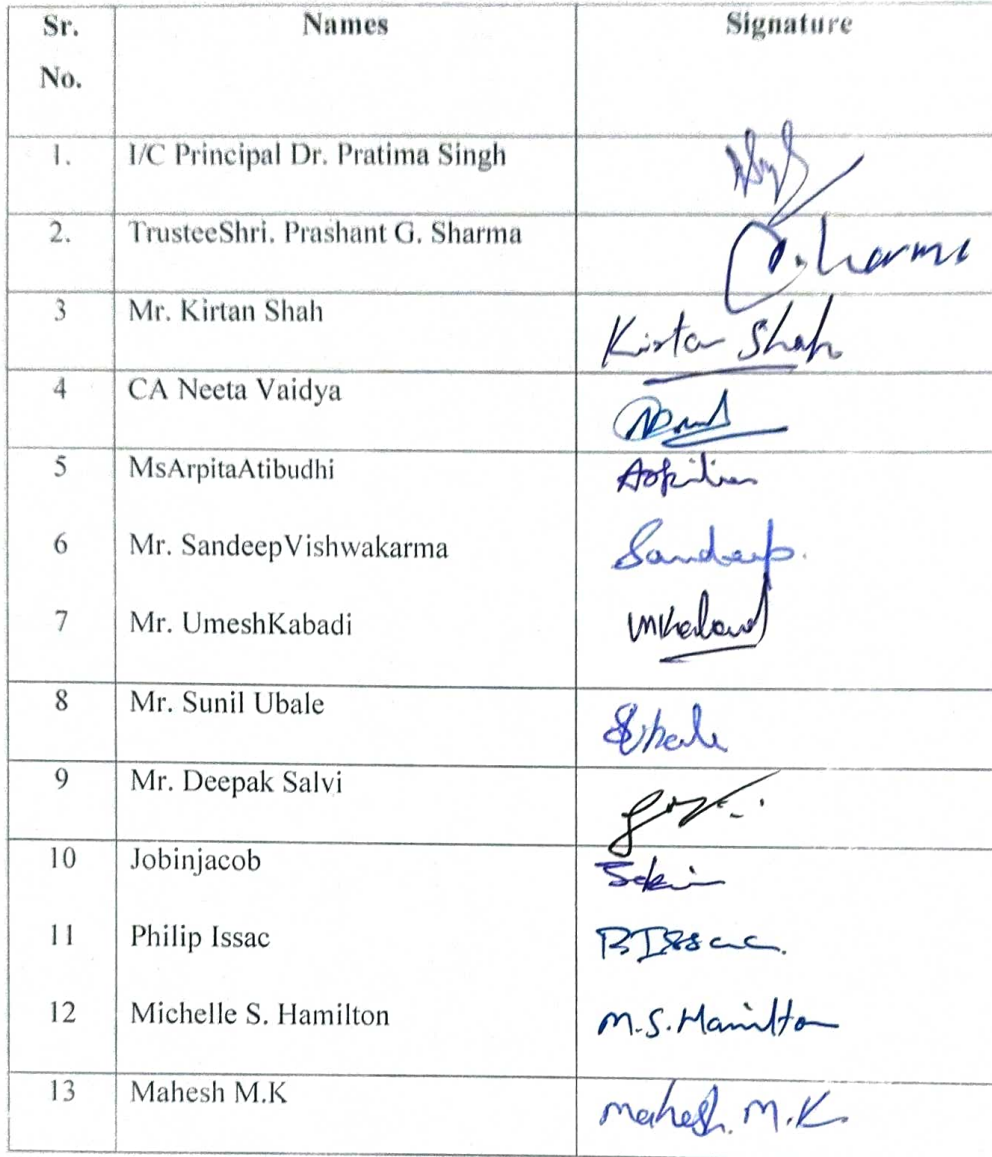 Sr. No. Names Signature
1. I/C Principal Dr. Pratima Singh
2. TrusteeShri. Prashant G. Sharma
3 Mr. Kirtan Shah Kirtan Shah
4 CA Neeta Vaidya
5 MsArpitaAtibudhi
6 Mr. SandeepVishwakarma Sandeep.
7 Mr. UmeshKabadi
8 Mr. Sunil Ubale SUbale
9 Mr. Deepak Salvi
10 Jobinjacob
11 Philip Issac
12 Michelle S. Hamilton M.S.Hamilton
13 Mahesh M.K Mahesh. M.K